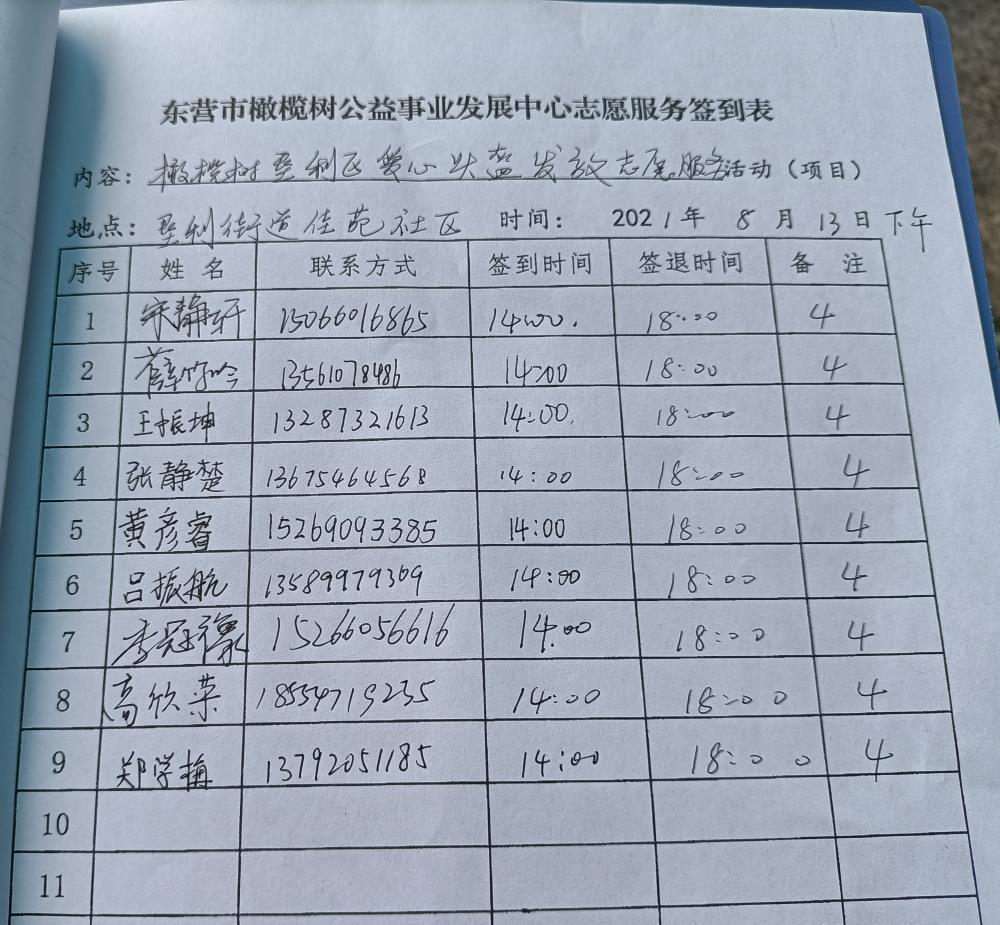 东营市橄榄树公益事业发展中心志愿服务签到表
内容：橄榄树垦利区爱心头盔发放志愿服务活动（项目）
地点：垦利街道佳苑社区 时间： 2021年 8月 13日下午
序号 姓名 联系方式 签到时间 签退时间 备注
1 宋静轩 15066016865 14:00. 18:00 4
2 薛竹吟 13561078486 14:00 18:00 4
3 王振坤 13287321613 14:00. 18:00 4
4 张静楚 13675464568 14:00 18:00 4
5 黄彦睿 15269093385 14:00 18:00 4
6 吕振航 13589979309 14:00 18:00 4
7 李冠 15266056616 14:00 18:00 4
8 高欣荣 18554719235 14:00 18:00 4
9 郑学梅 13792051185 14:00 18:00 4
10
11